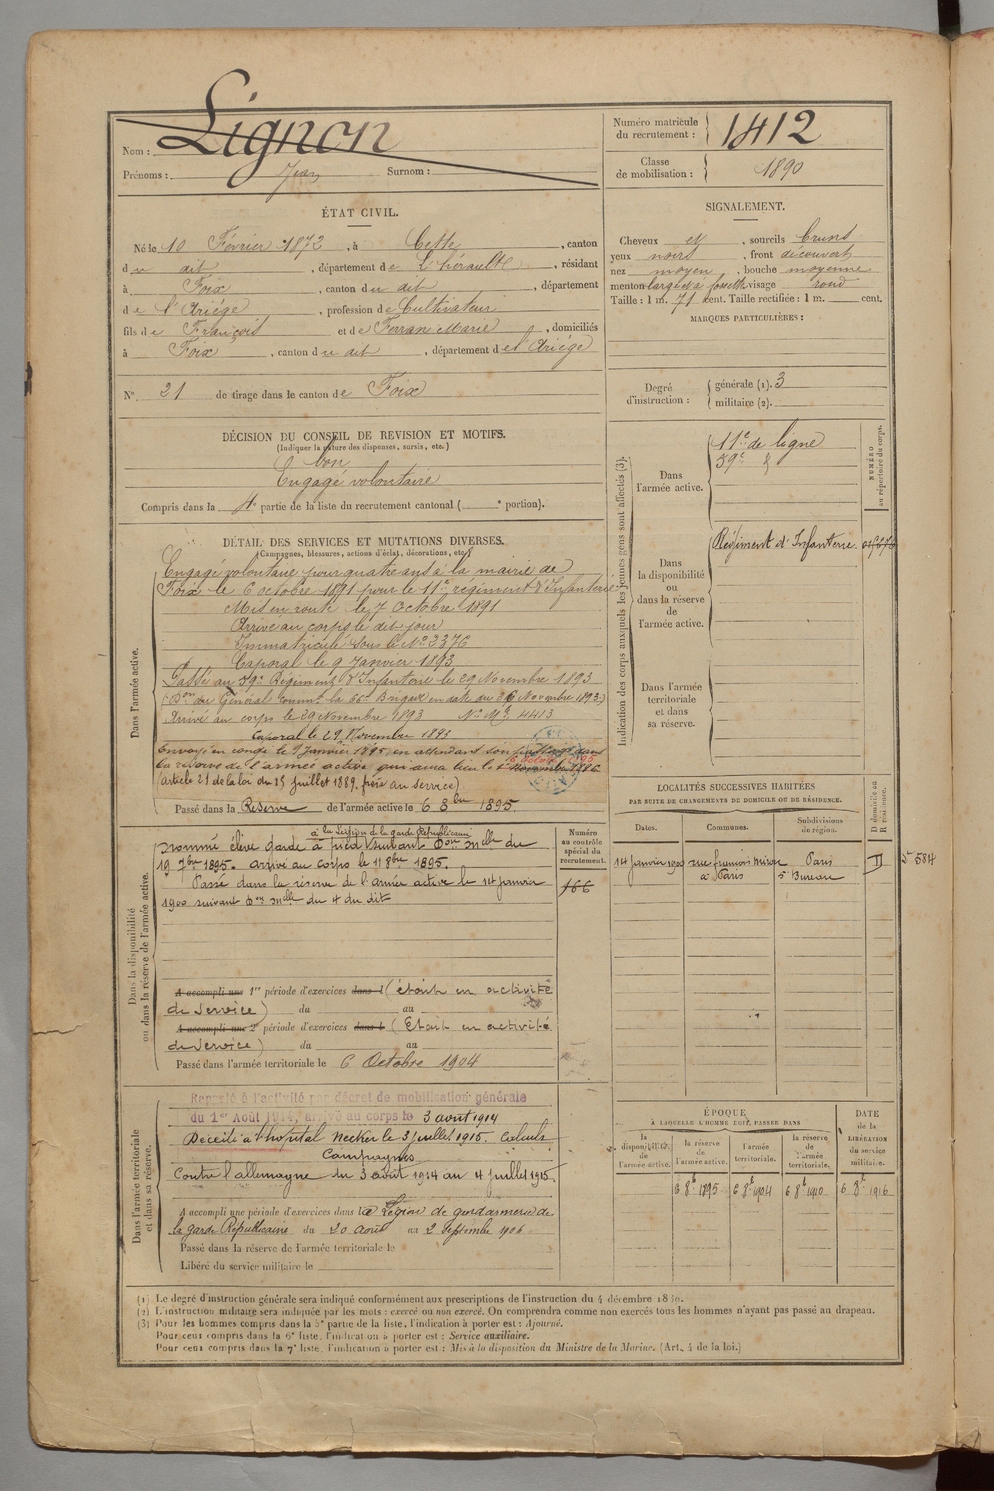 Nom : Lignon
Prénoms : Jean Surnom :
Numéro matricule du recrutement : 1412
Classe de mobilisation : 1890
ÉTAT CIVIL.
Né le 10 Février 1872, à Cette, canton
du dit, département de L'hérault, résidant
à Foix, canton du dit, département
de l'Ariége, profession de Cultivateur
fils de François et de Ferran Marie, domiciliés
à Foix, canton du dit, département de l'Ariége
N° 21 de tirage dans le canton de Foix
DÉCISION DU CONSEIL DE REVISION ET MOTIFS.
(Indiquer la nature des dispenses, sursis, etc.)
bon
Engagé volontaire
Compris dans la 4e partie de la liste du recrutement cantonal ( e portion).
DÉTAIL DES SERVICES ET MUTATIONS DIVERSES.
(Campagnes, blessures, actions d'éclat, décorations, etc.)
Dans l'armée active.
Engagé volontaire pour quatre ans à la mairie de
Foix le 6 octobre 1891 pour le 11e régiment d'Infanterie
Mis en route le 7 Octobre 1891
Arrivé au corps le dit jour
Immatriculé sous le No 3376
Caporal le 9 Janvier 1893
Passé au 59e Régiment d'Infanterie le 29 Novembre 1893
(Don du Général commt la 66e Brigade en date du 26 Novembre 1893)
Arrivé au corps le 29 Novembre 1893 No Mle 4413
Caporal le 29 Novembre 1893
Envoyé en congé le 9 Janvier 1895, en attendant son passage dans
la réserve de l'armée active qui aura lieu le 1er Novembre 1895
(article 21 de la loi du 15 juillet 1889, frère au service)
Passé dans la Réserve de l'armée active le 6 8bre 1895.
Dans la disponibilité
ou dans la réserve de l'armée active.
à la Légion de la garde Républicaine
Nommé élève garde à pied suivant Don Mlle du
19 7bre 1895. arrivé au corps le 11 8bre 1895.
Passé dans la réserve de l'armée active le 14 janvier
1900 suivant Don Mlle du 4 du dit
Numéro
au contrôle
spécial du
recrutement.
166
A accompli une 1re période d'exercices dans l (était en activité
de service) du au
A accompli une 2e période d'exercices dans l (Etait en activité
de service) du au
Passé dans l'armée territoriale le 6 Octobre 1904
Dans l'armée territoriale
et dans sa réserve.
Rappelé à l'activité par décret de mobilisation générale
du 1er Août 1914, arrivé au corps le 3 août 1914
Décédé à l'hôpital Necker le 3 juillet 1915. Calculs
Campagnes
Contre l'allemagne du 3 août 1914 au 4 juillet 1915.
A accompli une période d'exercices dans la Légion de gendarmerie de
la garde Républicaine du 20 août au 2 Septembre 1906
Passé dans la réserve de l'armée territoriale le
Libéré du service militaire le
SIGNALEMENT.
Cheveux et, sourcils bruns
yeux noirs, front découvert
nez moyen, bouche moyenne
menton large à fossette visage rond
Taille : 1 m. 71 cent. Taille rectifiée : 1 m. cent.
MARQUES PARTICULIÈRES :
Degré d'instruction :
générale (1). 3
militaire (2).
Indication des corps auxquels les jeunes gens sont affectés (3).
NUMÉRO
au répertoire du corps.
Dans
l'armée active.
11e de ligne
59e d
Dans
la disponibilité
ou
dans la réserve
de
l'armée active.
Régiment d'Infanterie.
Dans l'armée
territoriale
et dans
sa réserve.
LOCALITÉS SUCCESSIVES HABITÉES
PAR SUITE DE CHANGEMENTS DE DOMICILE OU DE RÉSIDENCE.
Dates. Communes. Subdivisions de région. D domicile ou R résidence.
14 janvier 1900 rue françois miron Paris D 584
à Paris 5e Bureau
ÉPOQUE
À LAQUELLE L'HOMME DOIT PASSER DANS
DATE
de la
LIBÉRATION
du service
militaire.
la disponibilité de l'armée active.
la réserve de l'armée active.
l'armée territoriale.
la réserve de l'armée territoriale.
6 8b 1895 6 8b 1904 6 8b 1910 6 8b 1916
(1) Le degré d'instruction générale sera indiqué conformément aux prescriptions de l'instruction du 4 décembre 1889.
(2) L'instruction militaire sera indiquée par les mots : exercé ou non exercé. On comprendra comme non exercés tous les hommes n'ayant pas passé au drapeau.
(3) Pour les hommes compris dans la 5e partie de la liste, l'indication à porter est : Ajourné.
Pour ceux compris dans la 6e liste, l'indication à porter est : Service auxiliaire.
Pour ceux compris dans la 7e liste, l'indication à porter est : Mis à la disposition du Ministre de la Marine. (Art. 4 de la loi.)